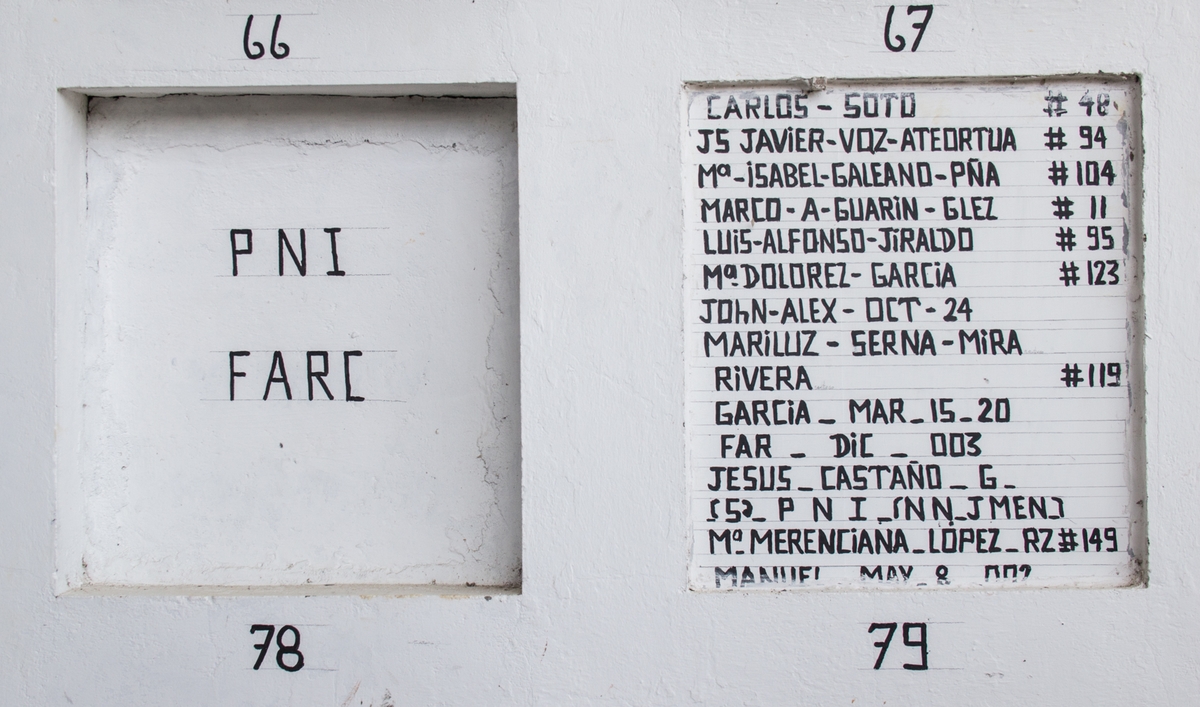 66
67
PNI
FARC
CARLOS - SOTO # 48
JS JAVIER-VQZ-ATEORTUA # 94
Mª-ISABEL-GALEANO-PÑA # 104
MARCO - A - GUARIN - GLEZ # 11
LUIS-ALFONSO-JIRALDO # 95
Mª DOLOREZ- GARCIA # 123
JOhN-ALEX - OCT - 24
MARILUZ - SERNA - MIRA
RIVERA #119
GARCIA _ MAR _ 15 _ 20
FAR _ DIC _ 003
JESUS _ CASTAÑO _ G _
(5)_ P N I _(NN_J MEN)
Mª MERENCIANA _ LÓPEZ _ RZ #149
MANUEL MAY 8 002
78
79